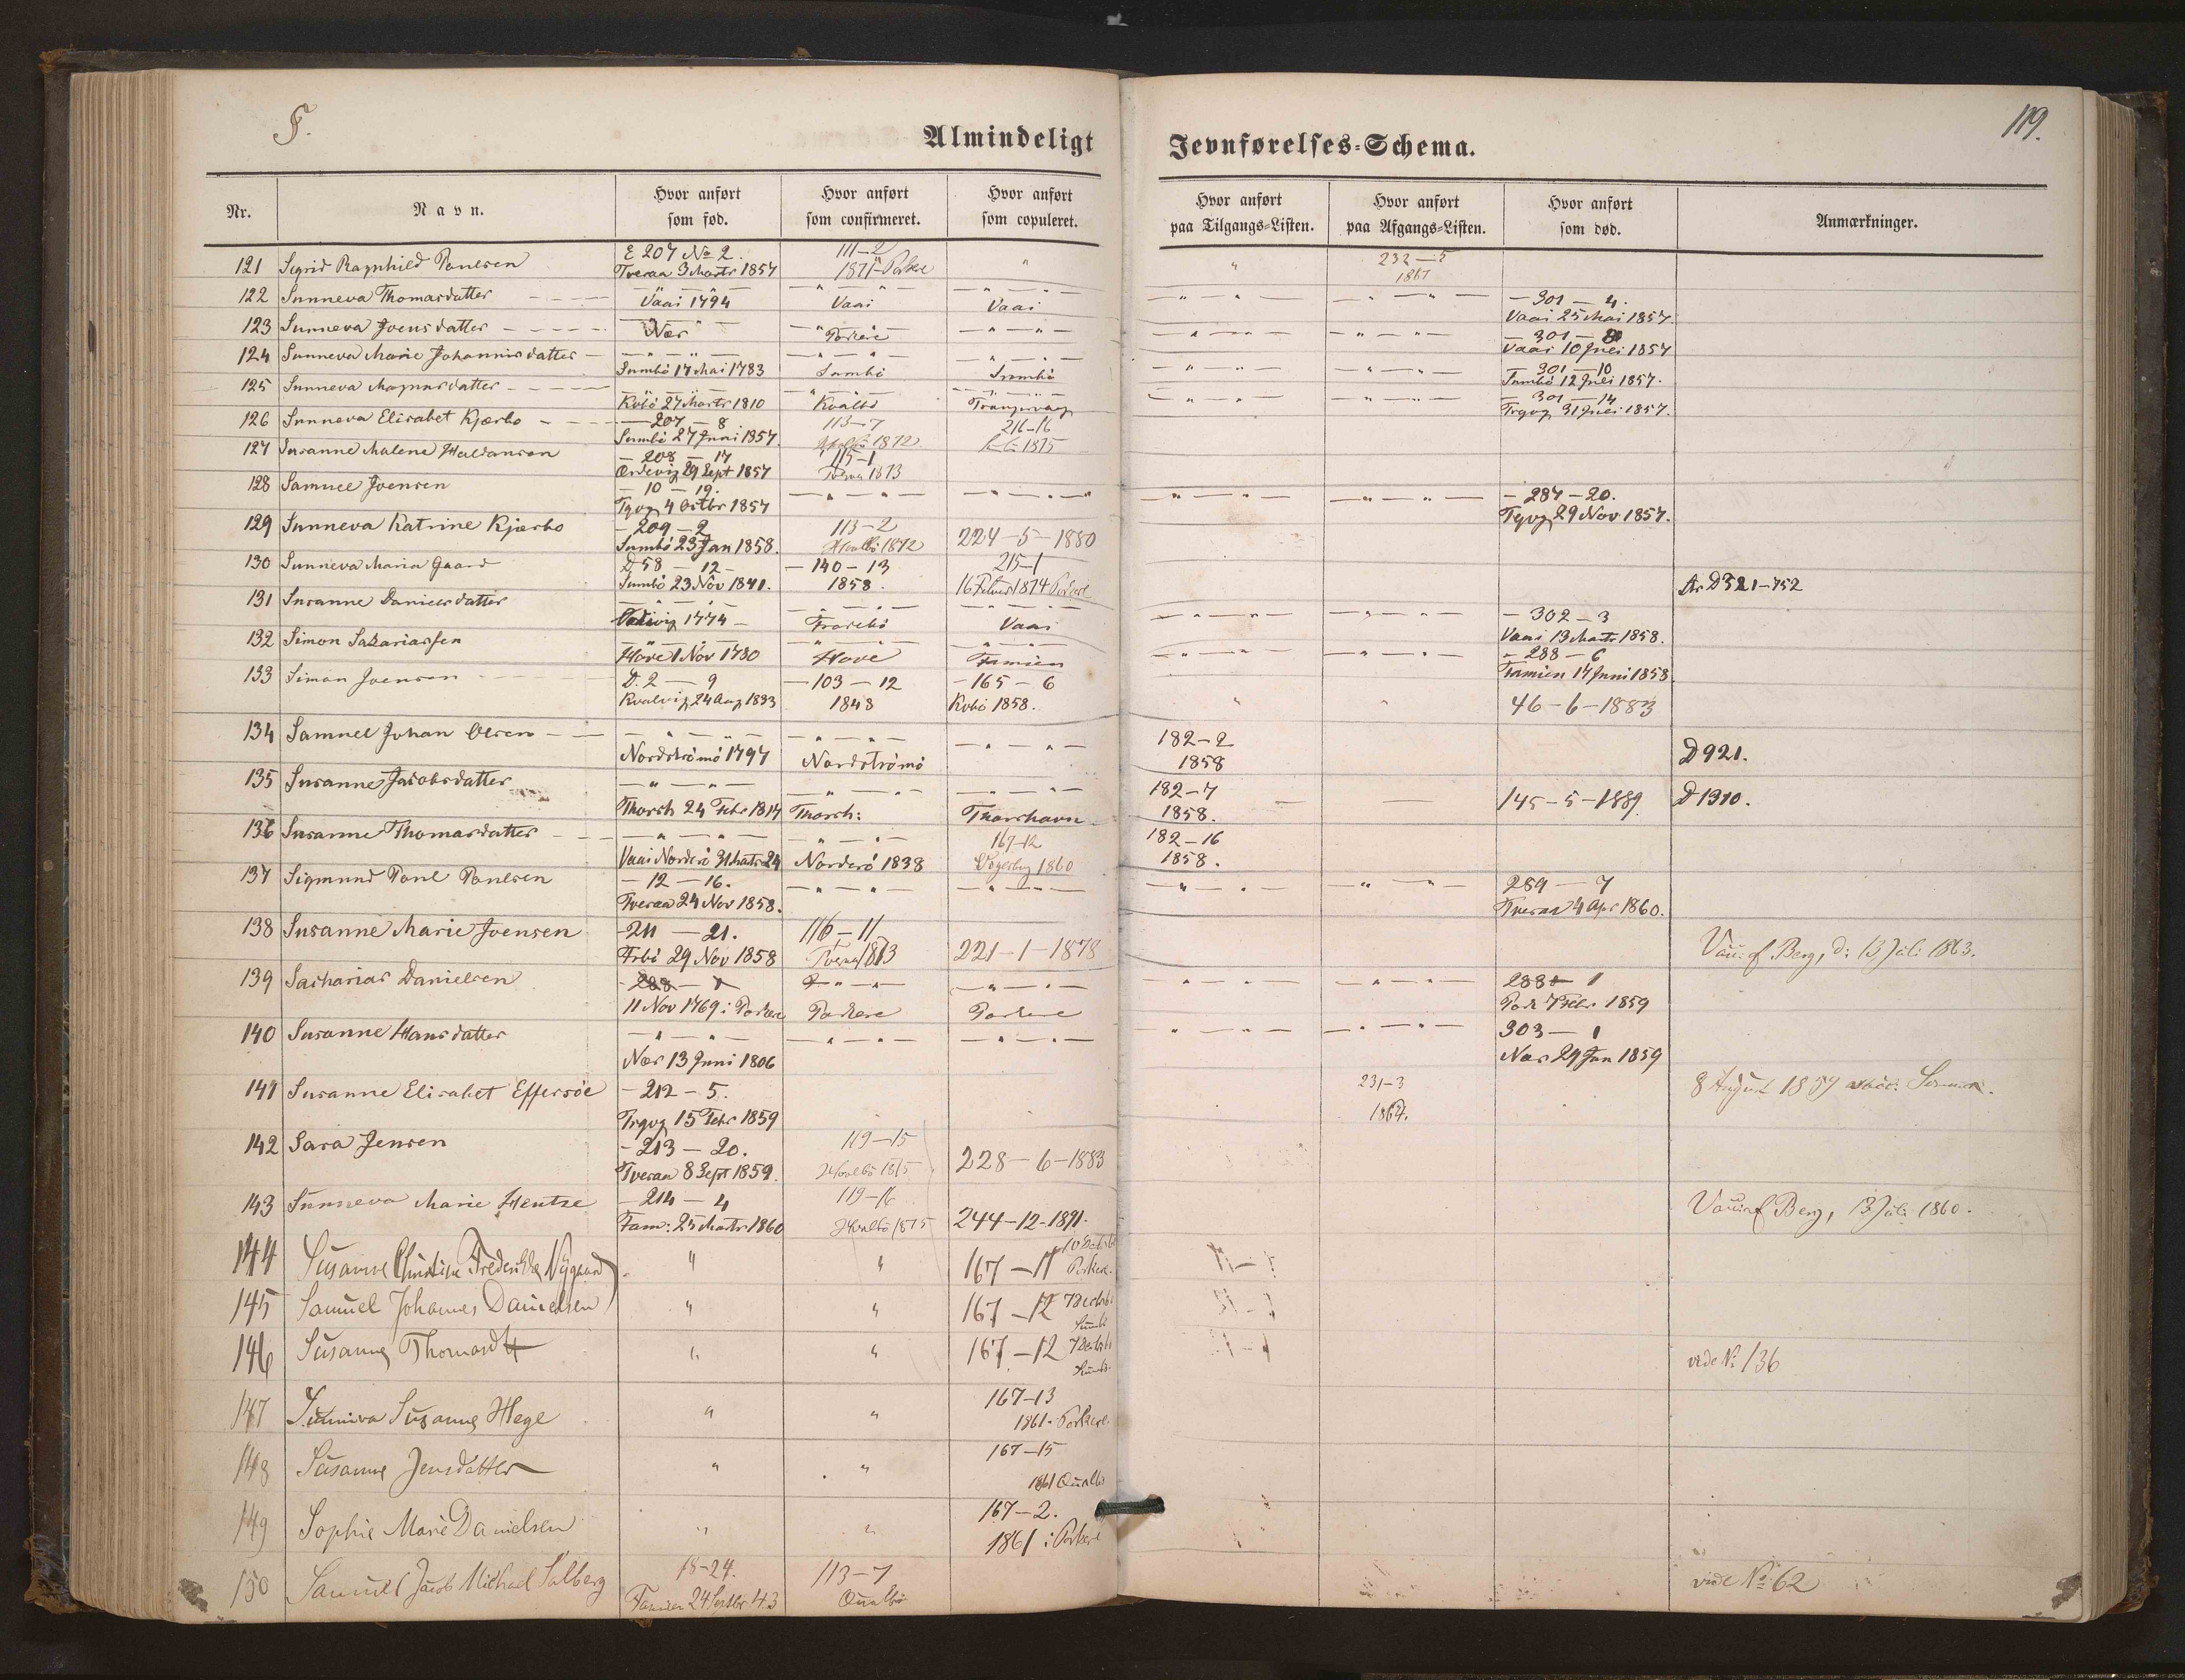 S.
119.
Almindeligt Jevnførelses-Schema.
Nr. Navn. Hvor anført som fød. Hvor anført som confirmeret. Hvor anført som copuleret. Hvor anført paa Tilgangs-Listen. Hvor anført paa Afgangs-Listen. Hvor anført som død. Anmærkninger.
E 207 No 2. 111-2 232-5
121 Sigrid Ragnhild Poulsen Tveraa 3 Marts 1857 1871 Porkere " " 1867
122 Sunneva Thomasdatter Vaai 1794 Vaai Vaai - 301 - 4.
Vaai 25 Mai 1857.
123 Sunneva Joensdatter Næs Porkere - 301 - 8
Vaai 10 Juli 1857
124 Sunneva Marie Johannisdatter Sumbö 17 Mai 1783 Sumbö Sumbö - 301 - 10
Sumbö 12 Juli 1857.
125 Sunneva Magnusdatter Kvbö 27 Marts 1810 Kvalbö Trangisvaag - 301 - 14
Trgvg 31 Juli 1857.
126 Sunneva Elisabet Kjærbo - 207 - 8 113-7 216-16
Sumbö 27 Juni 1857. 1872. 1875
127 Susanne Malene Haldansen - 208 - 17 115-1
Ördevig 29 Sept 1857 Tveraa 1873
128 Samuel Joensen - 10 - 19. - 287 - 20.
Tgvg 4 Octbr 1857 Tgvg 29 Nov 1857.
129 Sunneva Katrine Kjærbo - 209 - 2 113-2 224-5-1880
Sumbö 23 Jan 1858. Hvalbö 1872
130 Sunneva Maria Gaard D 58 - 12 - - 140 - 13 215-1
Sumbö 23 Nov 1841. 1858. 16 Februar 1874 Porkere D 321-752
131 Susanne Danielsdatter 1774 - Frodebö Vaai - 302 - 3
Vaai 13 Marts 1858.
132 Simon Sakariassen Hove 1 Nov 1780 Hove Famien - 288 - 6
Famien 14 Juni 1858.
133 Simon Joensen D. 2 - 9 - 103 - 12 - 165 - 6
Kvalvig 24 Aug 1833 1848 Kvbö 1858. 46-6-1883
134 Samuel Johan Olsen Nordströmö 1797 Nordströmö 182-2
1858 D 921.
135 Susanne Jacobsdatter 182-7
Thorsh 24 Febr 1814 Thorsh: Thorshavn 1858. 145-5-1889. D 1310.
136 Susanne Thomasdatter 167-12 182-16
Vaai Norderö 31 Marts 24 Norderö 1838 1860 1858.
137 Sigmund Poul Poulsen - 12 - 16. 289 - 7
Tveraa 24 Nov 1858. Tveraa 4 Apr 1860.
138 Susanne Marie Joensen - 211 - 21. 116-11
Frbö 29 Nov 1858 Tveraa 1873 221-1-1878 Vacc. af Berg, d: 13 Juli 1863.
139 Sacharias Danielsen 288 - 1 288 - 1
11 Nov 1769 i Porkere Porkere Porkere Pork 7 Febr 1859
140 Susanne Hansdatter 303 - 1
Næs 13 Juni 1806 Næs 29 Jan 1859
141 Susanne Elisabet Effersöe - 212 - 5. 231-3 8 August 1859
Trgvg 15 Febr 1859 1864.
142 Sara Jensen - 213 - 20. 119-15 228-6-1883
Tveraa 8 Sept 1859. Hvalbö 1875
143 Sunneva Marie Hentze - 214 - 4 119-16 Vacc. af Berg, 13 Juli 1860.
Fam: 25 Marts 1860 Hvalbö 1875 244-12-1891.
144 Susanne Christine Frederikke Nygaard " " 167-11 Porkere.
145 Samuel Johannes Danielsen " " 167-12 Sumbö
146 Susanne Thomasd. " " 167-12 Sumbö vide No 136
147 Sunniva Susanne Hege " " 167-13
1861. Porkere.
148 Susanne Jensdatter " " 167-15
1861 Qualbö
149 Sophie Marie Danielsen " " 167-2.
1861 i Porkere
150 Samuel Jacob Michael Salberg 18-24. 113-7
Famien 24 Septbr 43 Qualbö vide No 62